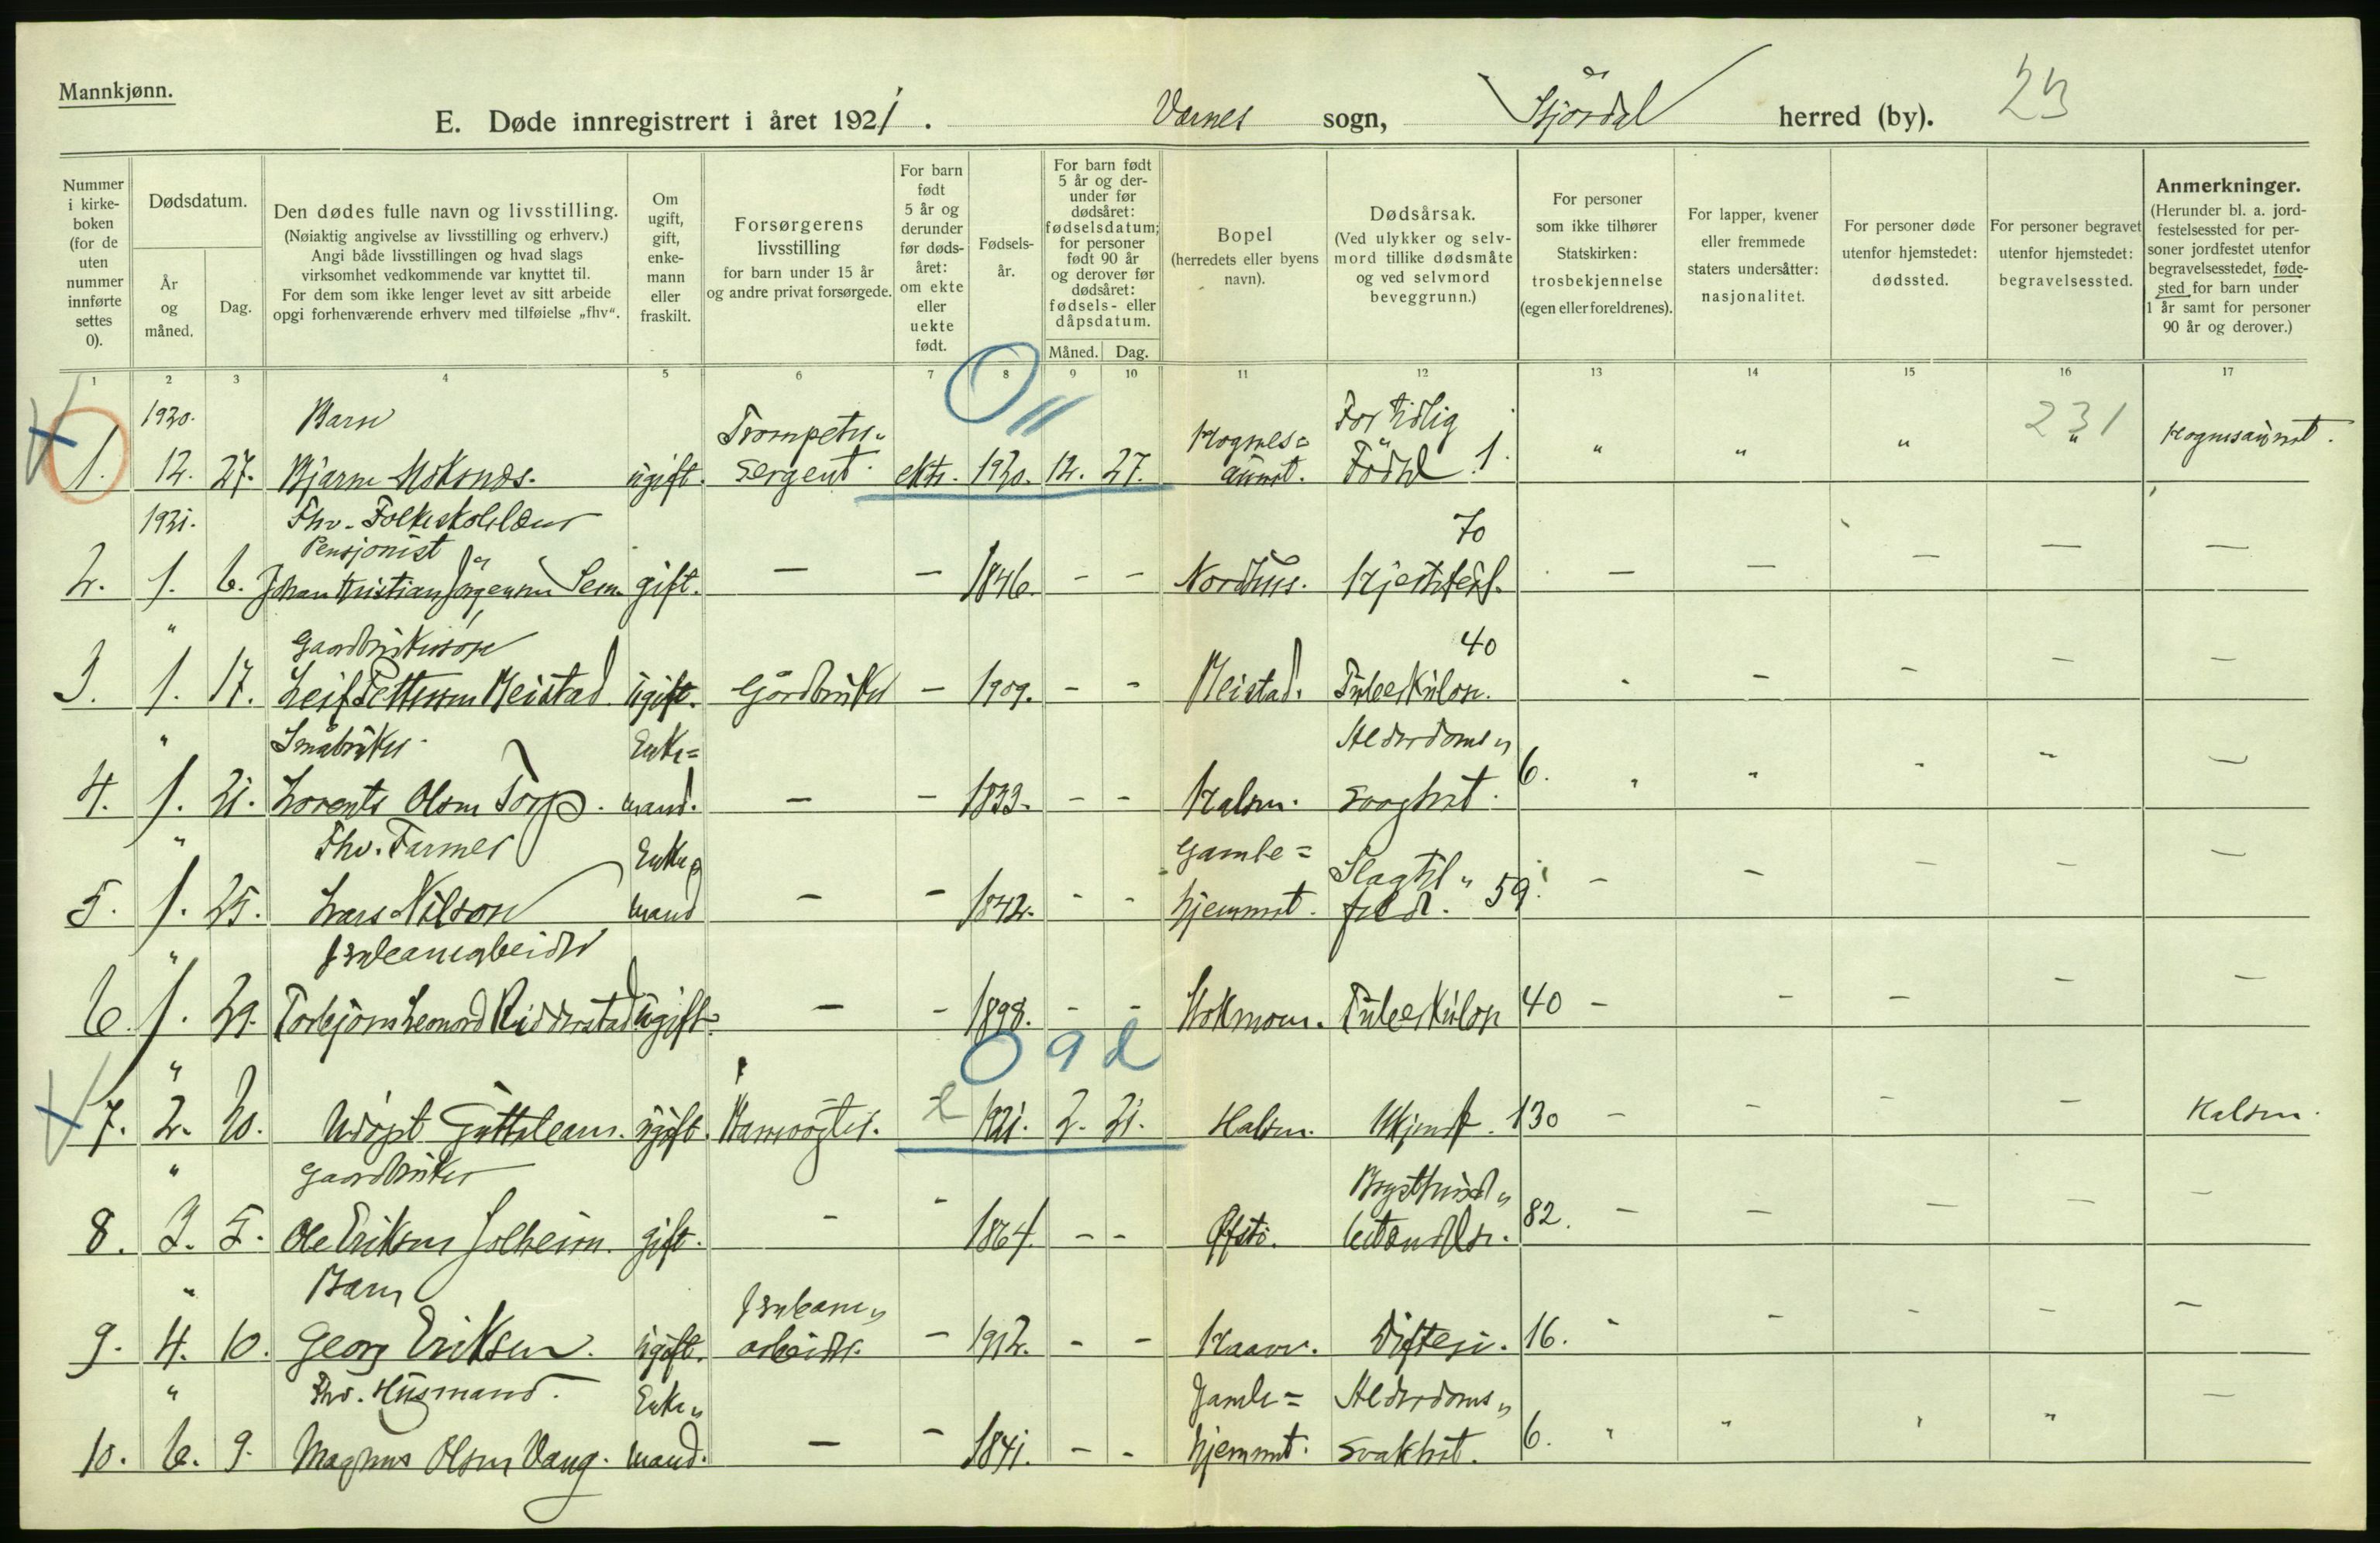 Mannkjønn.
E. Døde innregistrert i året 1921. Værnes sogn, Stjørdal herred (by). 23
Nummer i kirkeboken (for de uten nummer innførte settes 0).
Dødsdatum.
År og måned.
Dag.
Den dødes fulle navn og livsstilling.
(Nøiaktig angivelse av livsstilling og erhverv.)
Angi både livsstillingen og hvad slags
virksomhet vedkommende var knyttet til.
For dem som ikke lenger levet av sitt arbeide
opgi forhenværende erhverv med tilføielse „fhv“.
Om ugift, gift, enkemann eller fraskilt.
Forsørgerens livsstilling
for barn under 15 år
og andre privat forsørgede.
For barn født 5 år og derunder før dødsåret: om ekte eller uekte født.
Fødselsår.
For barn født 5 år og derunder før dødsåret: fødselsdatum; for personer født 90 år og derover før dødsåret: fødsels- eller dåpsdatum.
Måned. Dag.
Bopel
(herredets eller byens navn).
Dødsårsak.
(Ved ulykker og selvmord tillike dødsmåte og ved selvmord beveggrunn.)
For personer som ikke tilhører Statskirken: trosbekjennelse (egen eller foreldrenes).
For lapper, kvener eller fremmede staters undersåtter: nasjonalitet.
For personer døde utenfor hjemstedet: dødssted.
For personer begravet utenfor hjemstedet: begravelsessted.
Anmerkninger.
(Herunder bl. a. jordfestelsessted for personer jordfestet utenfor begravelsesstedet, fødested for barn under 1 år samt for personer 90 år og derover.)
1 2 3 4 5 6 7 8 9 10 11 12 13 14 15 16 17
1920. Barn Trompeter= For tidlig 231
1. 12. 27. Bjarne Moksnes. ugift. Sergent. ekte. 1920. 12. 27. Født 1.
1921. Fhv. Folkeskolelærer
Pensjonist 70
2. 1. 6. Johan Kristian Jörgensen Sem. gift. — — 1846. - - Hjertefeil.
" Gaardbrukersön 40
3. 1. 17. Leif Pettersen Reistad ugift. Gårdbruker — 1909. - - Reistad. Tuberkulose.
" Småbruker Enke= Alderdoms„
4. 1. 21. Lorents Olsen Torp. mand. — — 1833. - - Halsen. svaghet. 6.
" Fhv. Farmer Enke= Gamle= Slagtil„
5. 1. 25. Lars Nilson mand — — 1842. - - hjemmet. fælde. 59.
" Jernbanearbeider
6. 1. 29. Torbjörn Leonard Ridderstad ugift. — - 1898. - - Stokmoen. Tuberkulose 40
7. 2. 20. Udøpt Guttebarn. ugift. Banevogter. 1921. 2. 21. Halsen. Ukjendt. 130 Halsen.
" Gaardbruker Brysthinde„
8. 3. 5. Ole Eriksen Solheim. gift. - - 1864. - - Öfsti. betændelse. 82.
" Barn Jernbane„
9. 4. 10. Georg Eriksen. ugift. arbeider. — 1912. - - Difteri. 16.
" Fhv. Husmand. Enke„ Gamle= Alderdoms„
10. 6. 9. Magnus Olsen Vang. mand. — - 1841. - - hjemmet. svakhet. 6.